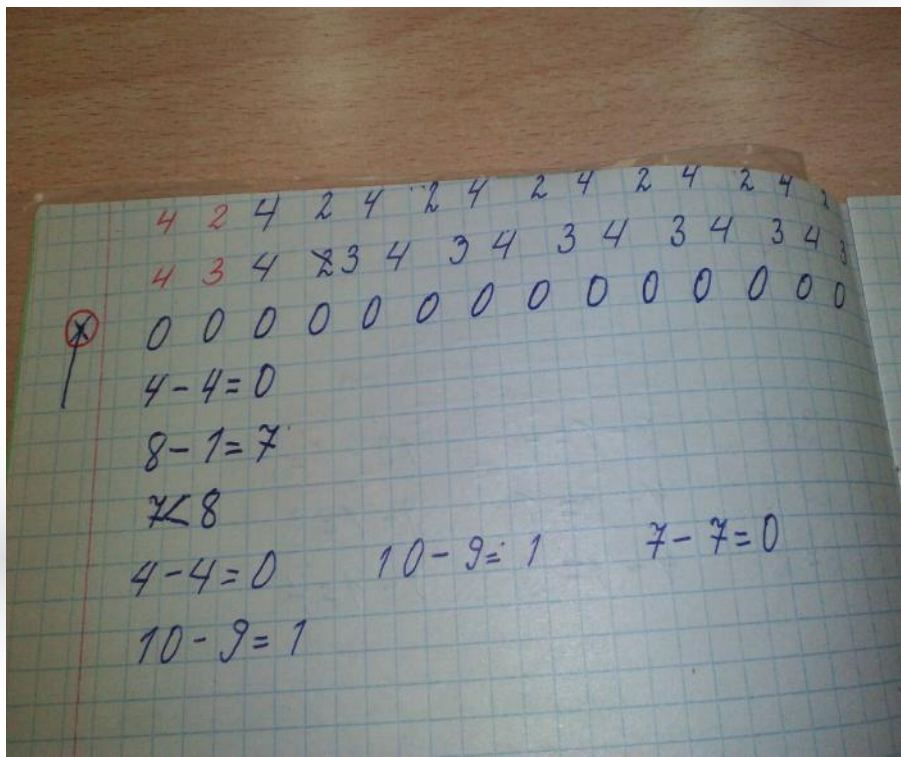 4 2 4 2 4 2 4 2 4 2 4 2 4 2
4 3 4 3 4 3 4 3 4 3 4 3 4 3
0 0 0 0 0 0 0 0 0 0 0 0 0 0
4-4=0
8-1=7
7<8
4-4=0 10-9=1 7-7=0
10-9=1